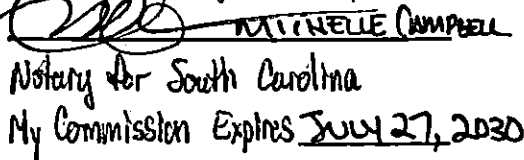 MICHELLE CAMPBELL
Notary for South Carolina
My Commission Expires JULY 27, 2030